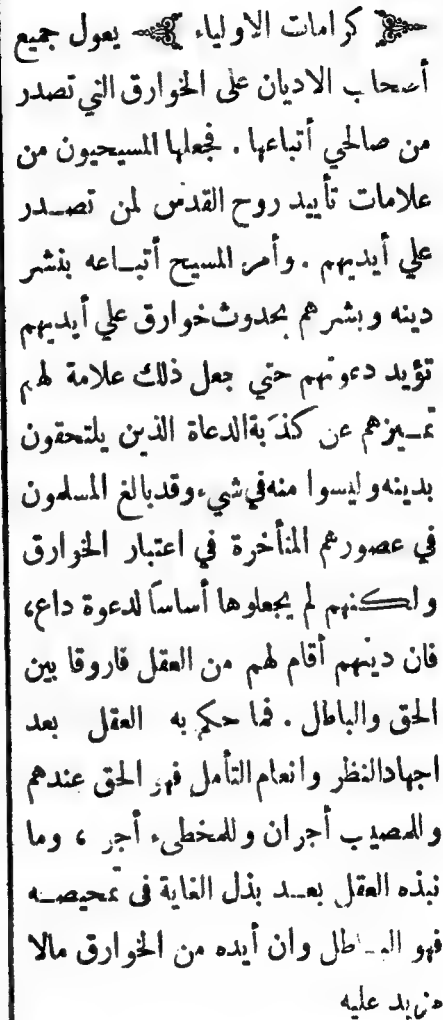 كرامات الاولياء يقول جميع
أصحاب الاديان على الخوارق التي تصدر
من صالحي أتباعها . فجعلها المسيحيون من
علامات تأييد روح القدس لمن تصدر
علي أيديهم . وأمر المسيح أتباعه بنشر
دينه وبشرهم بحدوث خوارق علي أيديهم
تؤيد دعوتهم حتي جعل ذلك علامة لهم
تميزهم عن كذَبة الدعاة الذين يلتحقون
بدينه وليسوا منه في شيء وقد بالغ المسلمون
في عصورهم المتأخرة في اعتبار الخوارق
ولكنهم لم يجعلوها أساساً لدعوة داع،
فان دينهم أقام لهم من العقل فاروقا بين
الحق والباطل . فما حكم به العقل بعد
اجهاد النظر وانعام التأمل فهو الحق عندهم
وللمصيب أجران وللمخطيء أجر ، وما
نبذه العقل بعد بذل الغاية في تمحيصه
فهو الباطل وان أيده من الخوارق مالا
مزيد عليه